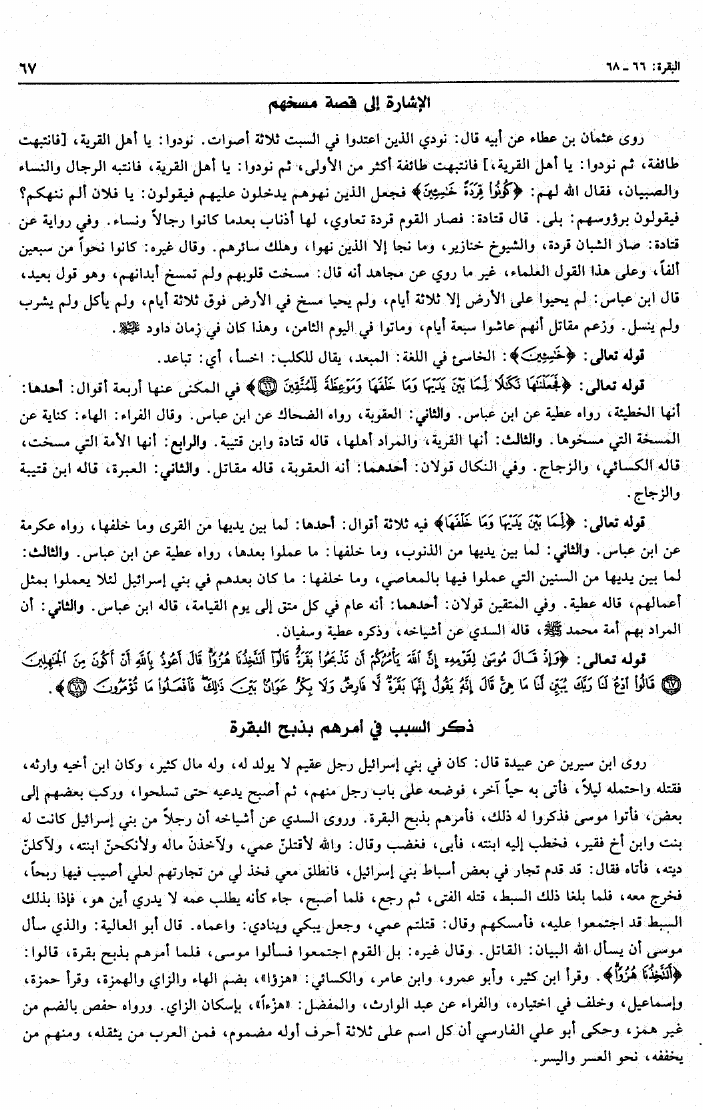 البقرة: ٦٦ - ٦٨
٦٧
الإشارة إلى قصة مسخهم
روى عثمان بن عطاء عن أبيه قال: نودي الذين اعتدوا في السبت ثلاثة أصوات. نودوا: يا أهل القرية، [فانتبهت
طائفة، ثم نودوا: يا أهل القرية،] فانتبهت طائفة أكثر من الأولى، ثم نودوا: يا أهل القرية، فانتبه الرجال والنساء
والصبيان، فقال الله لهم: ﴿كُونُوا قِرَدَةً خَاسِئِينَ﴾ فجعل الذين نهوهم يدخلون عليهم فيقولون: يا فلان ألم ننهكم؟
فيقولون برؤوسهم: بلى. قال قتادة: فصار القوم قردة تعاوي، لها أذناب بعدما كانوا رجالاً ونساء. وفي رواية عن
قتادة: صار الشبان قردة، والشيوخ خنازير، وما نجا إلا الذين نهوا، وهلك سائرهم. وقال غيره: كانوا نحواً من سبعين
ألفاً، وعلى هذا القول العلماء، غير ما روي عن مجاهد أنه قال: مسخت قلوبهم ولم تمسخ أبدانهم، وهو قول بعيد،
قال ابن عباس: لم يحيوا على الأرض إلا ثلاثة أيام، ولم يحيا مسخ في الأرض فوق ثلاثة أيام، ولم يأكل ولم يشرب
ولم ينسل. وزعم مقاتل أنهم عاشوا سبعة أيام، وماتوا في اليوم الثامن، وهذا كان في زمان داود ﷺ.
قوله تعالى: ﴿خَاسِئِينَ﴾: الخاسئ في اللغة: المبعد، يقال للكلب: اخسأ، أي: تباعد.
قوله تعالى: ﴿فَجَعَلْنَاهَا نَكَالًا لِمَا بَيْنَ يَدَيْهَا وَمَا خَلْفَهَا وَمَوْعِظَةً لِلْمُتَّقِينَ ٦٦﴾ في المكنى عنها أربعة أقوال: أحدها:
أنها الخطيئة، رواه عطية عن ابن عباس. والثاني: العقوبة، رواه الضحاك عن ابن عباس. وقال الفراء: الهاء: كناية عن
المسخة التي مسخوها. والثالث: أنها القرية، والمراد أهلها، قاله قتادة وابن قتيبة. والرابع: أنها الأمة التي مسخت،
قاله الكسائي، والزجاج. وفي النكال قولان: أحدهما: أنه العقوبة، قاله مقاتل. والثاني: العبرة، قاله ابن قتيبة
والزجاج.
قوله تعالى: ﴿لِمَا بَيْنَ يَدَيْهَا وَمَا خَلْفَهَا﴾ فيه ثلاثة أقوال: أحدها: لما بين يديها من القرى وما خلفها، رواه عكرمة
عن ابن عباس. والثاني: لما بين يديها من الذنوب، وما خلفها: ما عملوا بعدها، رواه عطية عن ابن عباس. والثالث:
لما بين يديها من السنين التي عملوا فيها بالمعاصي، وما خلفها: ما كان بعدهم في بني إسرائيل لئلا يعملوا بمثل
أعمالهم، قاله عطية. وفي المتقين قولان: أحدهما: أنه عام في كل متق إلى يوم القيامة، قاله ابن عباس. والثاني: أن
المراد بهم أمة محمد ﷺ، قاله السدي عن أشياخه، وذكره عطية وسفيان.
قوله تعالى: ﴿وَإِذْ قَالَ مُوسَى لِقَوْمِهِ إِنَّ اللَّهَ يَأْمُرُكُمْ أَن تَذْبَحُوا بَقَرَةً قَالُوا أَتَتَّخِذُنَا هُزُوًا قَالَ أَعُوذُ بِاللَّهِ أَنْ أَكُونَ مِنَ الْجَاهِلِينَ
٦٧ قَالُوا ادْعُ لَنَا رَبَّكَ يُبَيِّن لَّنَا مَا هِيَ قَالَ إِنَّهُ يَقُولُ إِنَّهَا بَقَرَةٌ لَّا فَارِضٌ وَلَا بِكْرٌ عَوَانٌ بَيْنَ ذَلِكَ فَافْعَلُوا مَا تُؤْمَرُونَ ٦٨﴾.
ذكر السبب في أمرهم بذبح البقرة
روى ابن سيرين عن عبيدة قال: كان في بني إسرائيل رجل عقيم لا يولد له، وله مال كثير، وكان ابن أخيه وارثه،
فقتله واحتمله ليلاً، فأتى به حياً آخر، فوضعه على باب رجل منهم، ثم أصبح يدعيه حتى تسلحوا، وركب بعضهم إلى
بعض، فأتوا موسى فذكروا له ذلك، فأمرهم بذبح البقرة. وروى السدي عن أشياخه أن رجلاً من بني إسرائيل كانت له
بنت وابن أخ فقير، فخطب إليه ابنته، فأبى، فغضب وقال: والله لأقتلنّ عمي، ولآخذنّ ماله ولأنكحنّ ابنته، ولآكلنّ
ديته، فأتاه فقال: قد قدم تجار في بعض أسباط بني إسرائيل، فانطلق معي فخذ لي من تجارتهم لعلي أصيب فيها ربحاً،
فخرج معه، فلما بلغا ذلك السبط، قتله الفتى، ثم رجع، فلما أصبح، جاء كأنه يطلب عمه لا يدري أين هو، فإذا بذلك
السبط قد اجتمعوا عليه، فأمسكهم وقال: قتلتم عمي، وجعل يبكي وينادي: واعماه. قال أبو العالية: والذي سأل
موسى أن يسأل الله البيان: القاتل. وقال غيره: بل القوم اجتمعوا فسألوا موسى، فلما أمرهم بذبح بقرة، قالوا:
﴿أَتَتَّخِذُنَا هُزُوًا﴾. وقرأ ابن كثير، وأبو عمرو، وابن عامر، والكسائي: «هزؤا»، بضم الهاء والزاي والهمزة، وقرأ حمزة،
وإسماعيل، وخلف في اختياره، والفراء عن عبد الوارث، والمفضل: «هزْءاً»، بإسكان الزاي. ورواه حفص بالضم من
غير همز، وحكى أبو علي الفارسي أن كل اسم على ثلاثة أحرف أوله مضموم، فمن العرب من يثقله، ومنهم من
يخففه، نحو العسر واليسر.